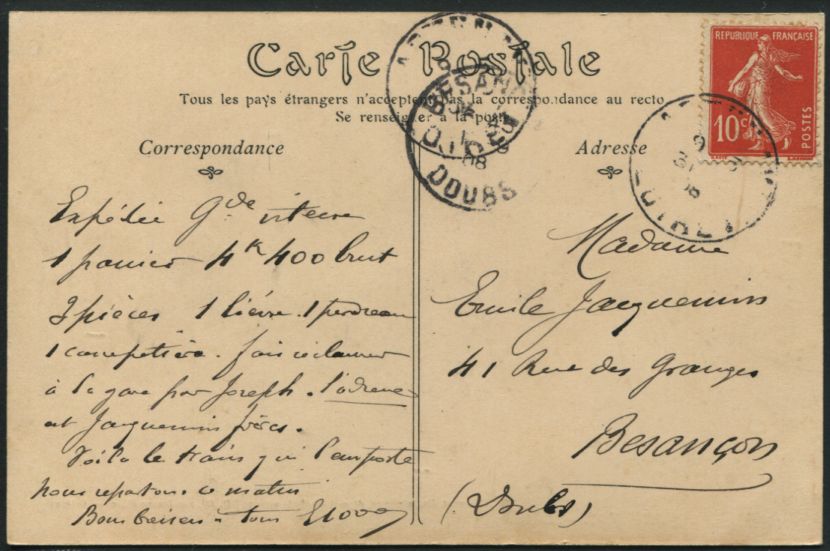 Carte Postale
Tous les pays étrangers n'acceptent pas la correspondance au recto
Se renseigner à la poste
Correspondance
Adresse
REPUBLIQUE FRANÇAISE
10c
POSTES
BESANÇON
DOUBS
08
LOIRET
Expédié Gde vitesse
1 panier 4k 400 brut
3 pièces 1 lièvre. 1 perdreau
1
fais réclamer
à la gare par Joseph. l'adresse
est Jacquemin frères.
Voilà le train qui l'emporte
Nous repartons ce matin
Bons baisers à tous
Madame
Emile Jacquemin
41 Rue des Granges
Besançon
(Doubs)